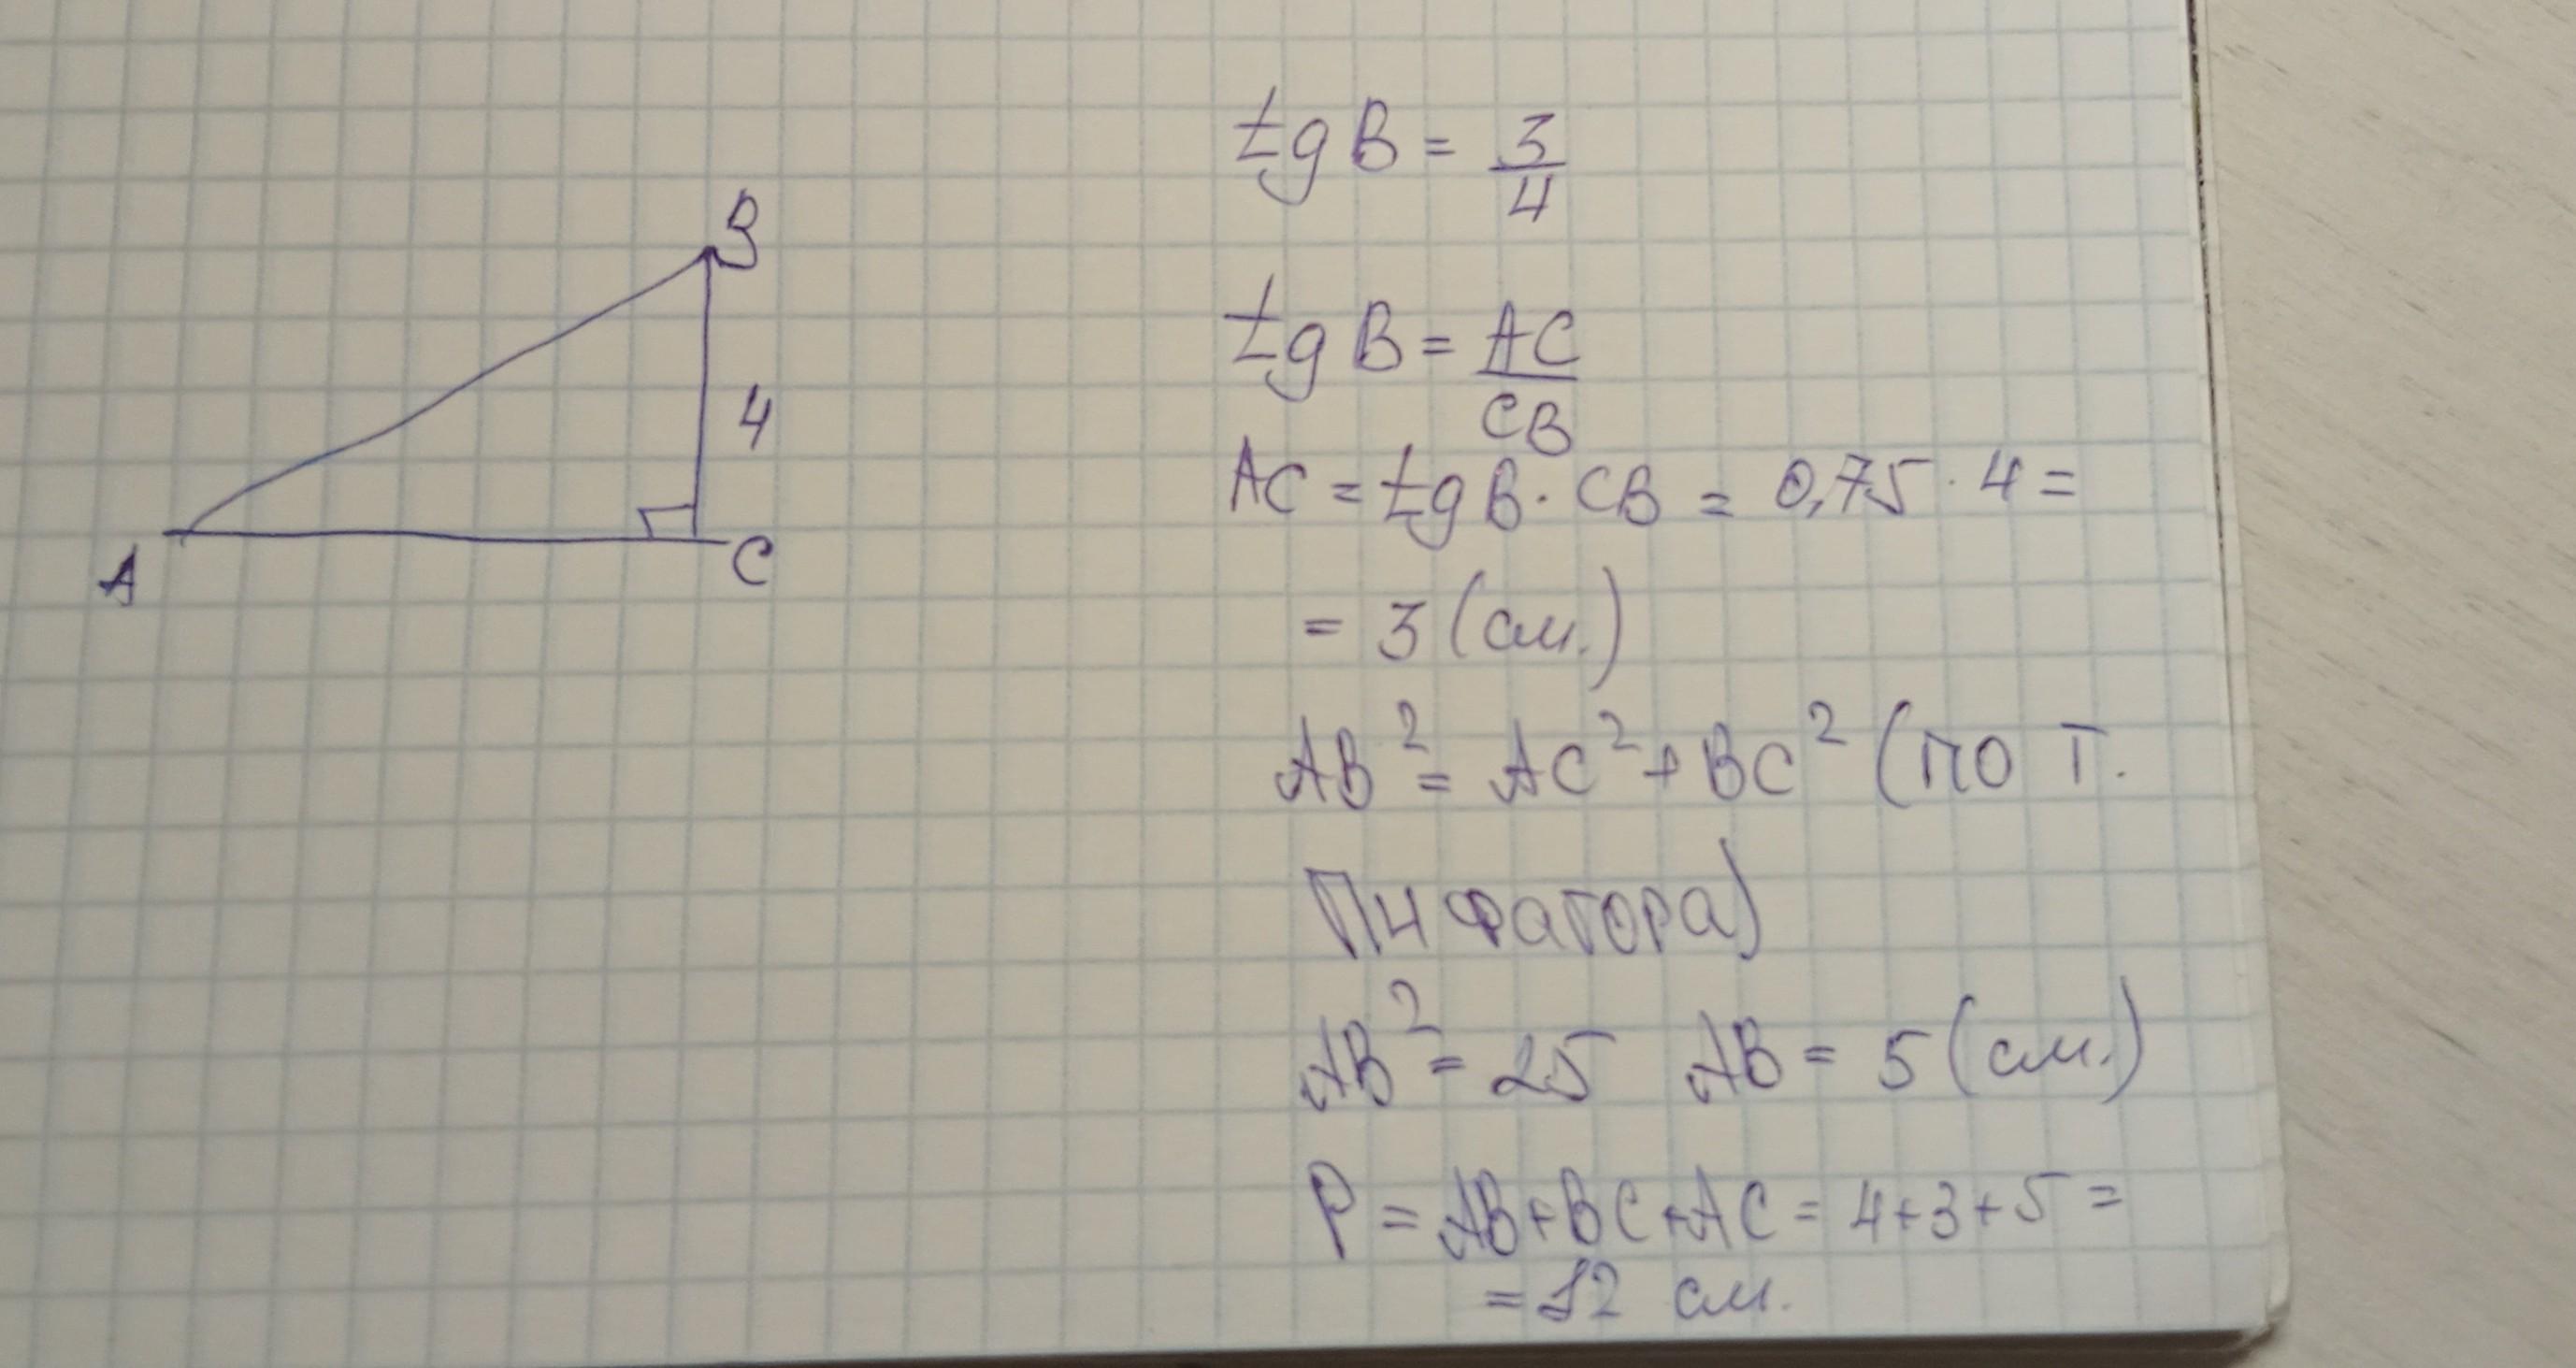 B
4
A
C
tg B = 3/4
tg B = AC/CB
AC = tg B · CB = 0,75 · 4 =
= 3 (см.)
AB² = AC² + BC² (по т.
Пифагора)
AB² = 25 AB = 5 (см.)
P = AB + BC + AC = 4 + 3 + 5 =
= 12 см.